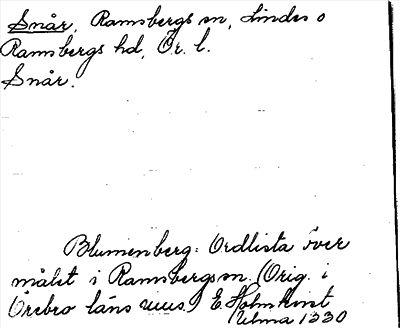 Snår, Ramsbergs sn, Lindes o
Ramsbergs hd, Ör. l.
Snår.
Blumenberg: Ordlista över
målet i Ramsbergs sn. (Orig. i
Örebro läns mus.) E. Holmkvist
Ulma 1330